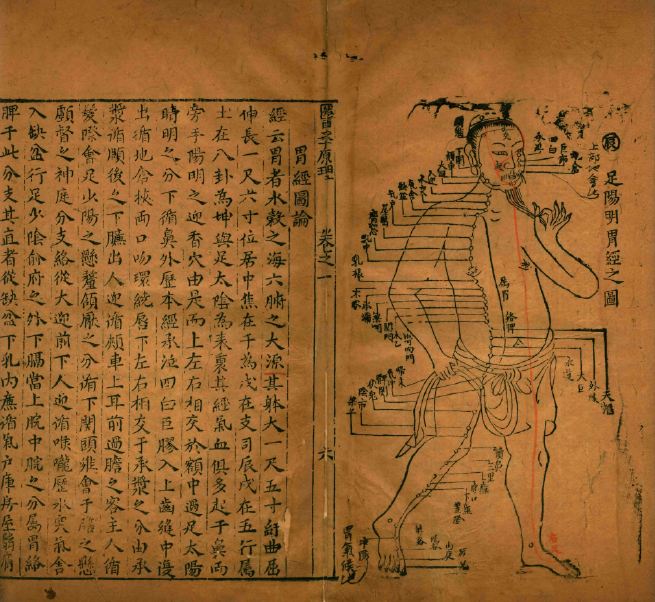 辰
足陽明胃經之圖
四白
巨膠
地倉
乳中
乳根
不容
承滿
梁門
関門
太乙
滑肉門
天樞
外陵
大巨
水道
歸來
氣冲
髀関
伏兔
陰市
梁丘
犢鼻
三里
条口
下廉
豐隆
解谿
冲陽
属胃
絡脾
醫學原理 卷之一 六
胃經圖論
經云胃者水穀之海六腑之大源其躰大一尺五寸紆曲屈
伸長二尺六寸位居中焦在干為戊在支司辰戌在五行属
土在八卦為坤與足太陰為表裏其經氣血俱多起于鼻兩
旁手陽明之迎香穴由是而上左右相交於頞中過足太陽
睛明之分下循鼻外歷本經承泣四白巨膠入上齒縫中復
出循地倉挾兩口吻環繞唇下左右相交于承漿之分由承
漿循頤後之下臁出人迎循頰車上耳前過膽之客主人循
髮際會足少陽之懸釐頷厭之分循下関頭維會于額之懸
顱督之神庭分支絡從大迎前下人迎循喉嚨歷水突氣舍
入缺盆行足少陰俞府之外下膈當上脘中脘之分屬胃絡
脾于此分支其直者從缺盆下乳內廉循氣戶庫房屋翳膺